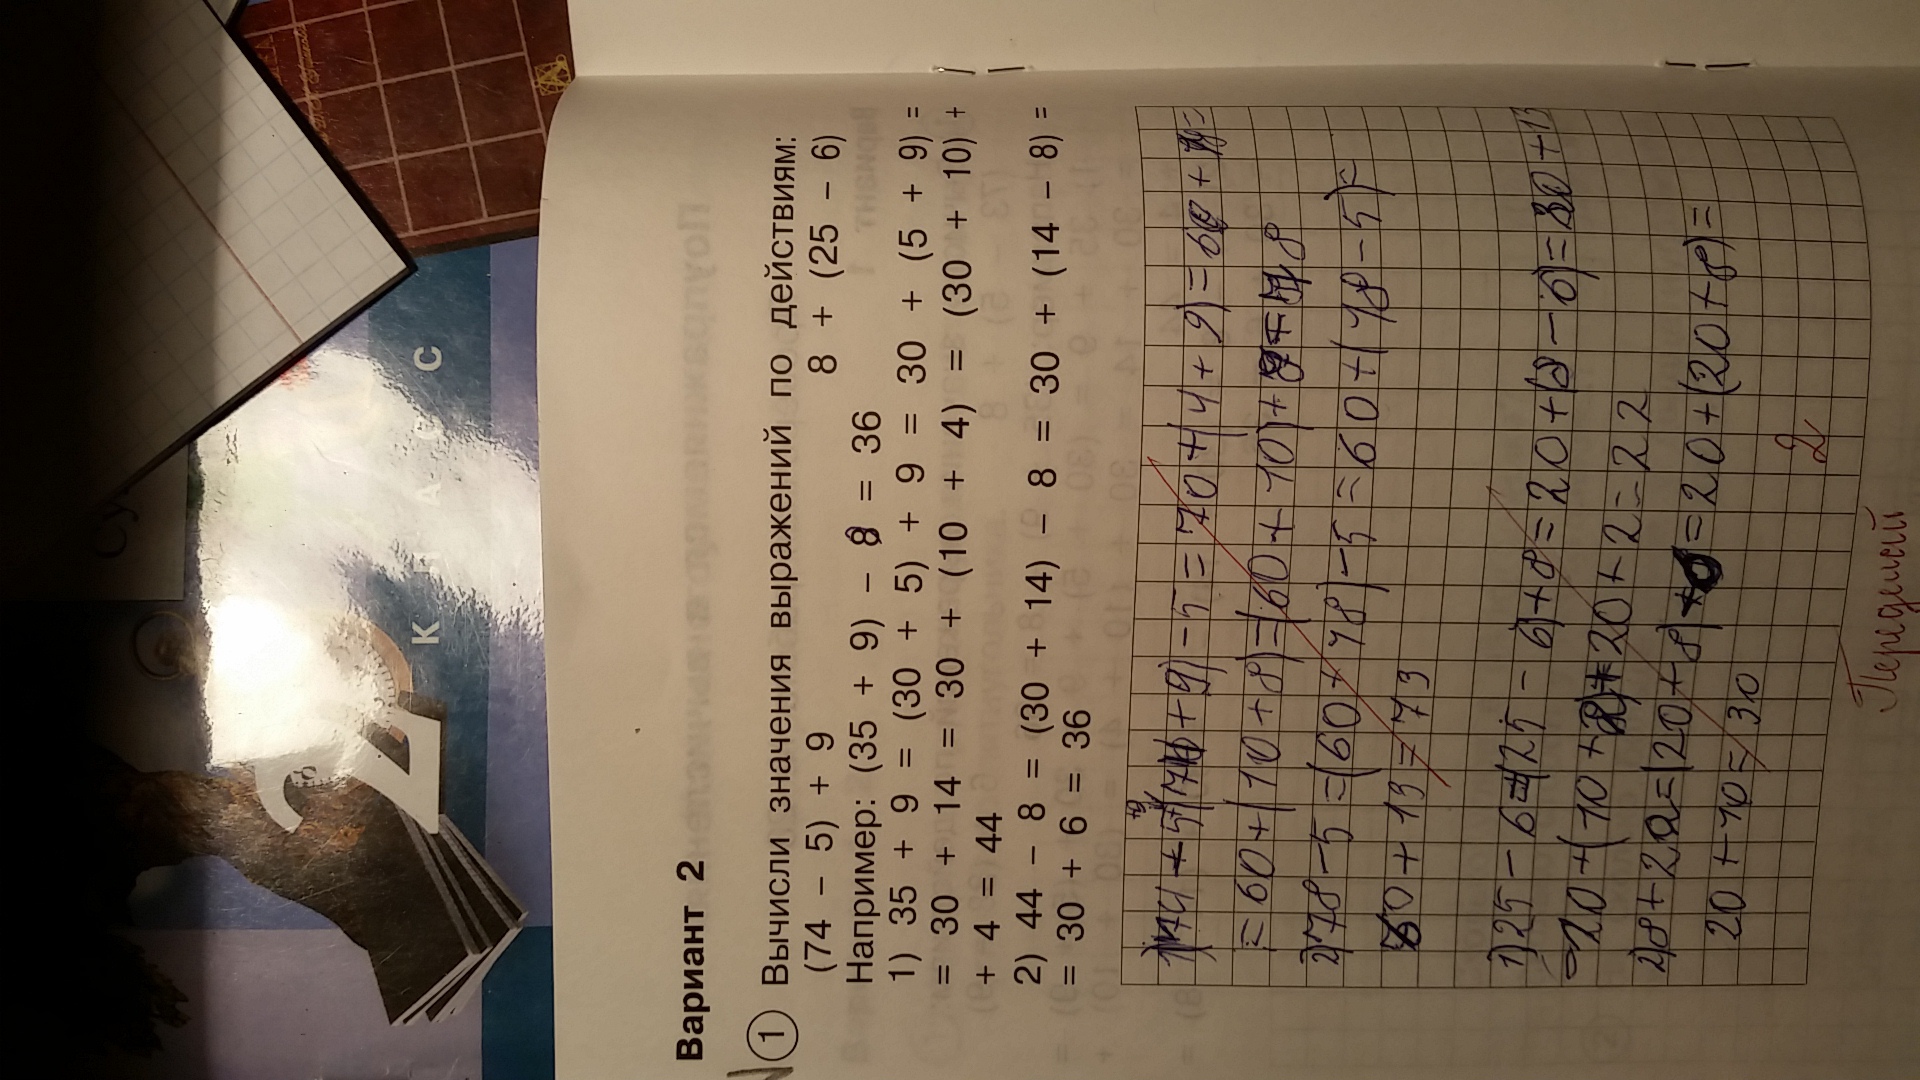 Вариант 2
1 Вычисли значения выражений по действиям:
(74 − 5) + 9 8 + (25 − 6)
Например: (35 + 9) − 8 = 36
1) 35 + 9 = (30 + 5) + 9 = 30 + (5 + 9) =
= 30 + 14 = 30 + (10 + 4) = (30 + 10) +
+ 4 = 44
2) 44 − 8 = (30 + 14) − 8 = 30 + (14 − 8) =
= 30 + 6 = 36
+ 9) − 5 = 70 + (4 + 9) =
= 60 + (10 + 8) = (60 + 10) +
2) 78 − 5 = (60 + 18) − 5 = 60 + (18 − 5) =
60 + 13 = 73
1) 25 − 6 = (25 − 6) + 8 = 20 + (8 − 6) =
20 + 2 = 22
2) 8 + 20 = (20 + 8) + = 20 + (20 + 8) =
20 + 10 = 30
2
Переделай
К Л А С С